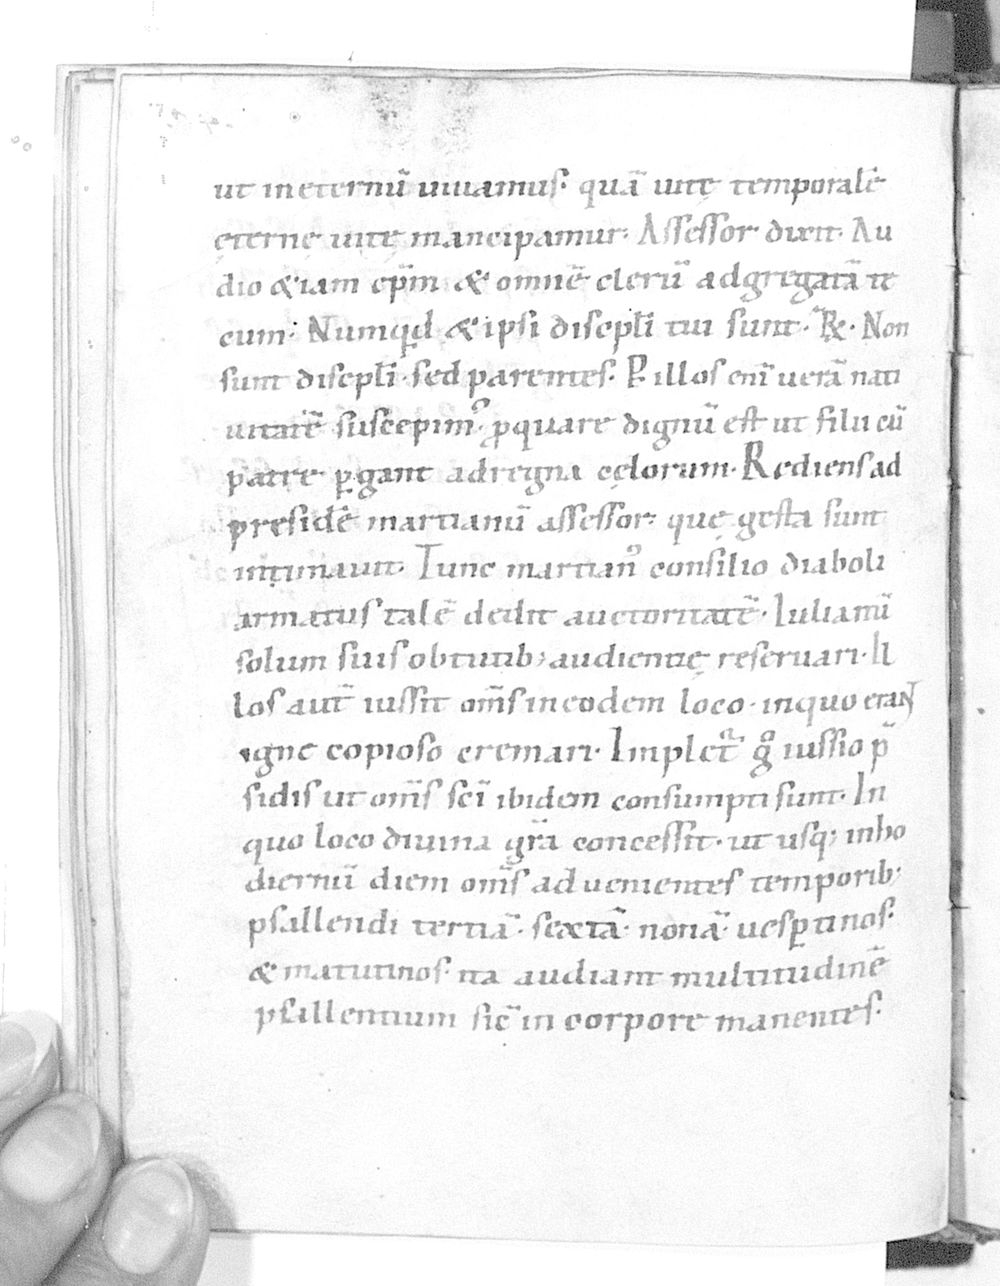 ut in eternū uiuamus· quā uitę temporalē
ęternę uitę mancipamur· Assessor dixit· Au
dio &iam ep̄m & omnē clerū adgregatā te
cum· Numqͥd & ipsi discipl̄i tui sunt· R̄· Non
sunt discipl̄i· sed parentes· Ꝑ illos eni̅ uerā nati
uitatē suscepimꝰ· ꝓquare dignū est ut filii cū
patre ꝑgant ad regna cęlorum· Rediens ad
presidē martianū assessor· quę gesta sunt
intimauit· Tunc martianꝰ consilio diaboli
armatus talē dedit auctoritatē· Iulianū
solum suis obtutib; audientię reseruari· Il
los aut̄ iussit om̄s in eodem loco· in quo erant
igne copioso cremari· Implet᷑ gͦ iussio p̄
sidis ut om̄s sc̄i ibidem consumpti sunt· In
quo loco diuina gr̄a concessit· ut usq; in ho
diernū diem om̄s aduenientes temporib;
psallendi tertiā· sextā· nonā· uesꝑtinos·
& matutinos· ita audiant multitudinē
psallentium sic̄ in corpore manentes·